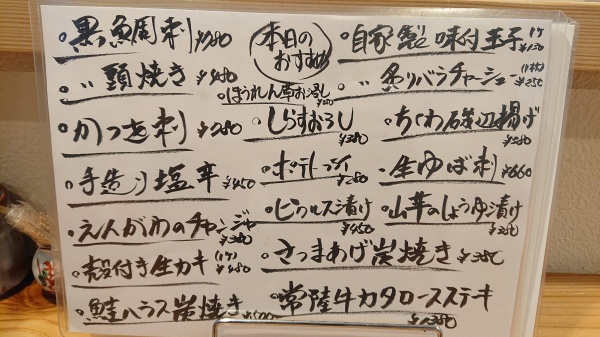 本日の
おすすめ
黒鯛刺 ¥780
〃 頭焼き ¥480
かつを刺 ¥780
手造り塩辛 ¥450
えんがわのチャンジャ ¥380
殻付き生カキ (1ケ) ¥480
鮭ハラス炭焼き
ほうれん草お浸し
しらすおろし ¥380
ポテトフライ ¥280
ピクルス漬け ¥450
さつまあげ炭焼き ¥380
常陸牛カタロースステーキ ¥1380
自家製味付玉子 1ケ ¥150
〃 炙りバラチャーシュー (1枚) ¥250
ちくわ磯辺揚げ ¥380
生ゆば刺 ¥660
山芋のしょうゆ漬け ¥380